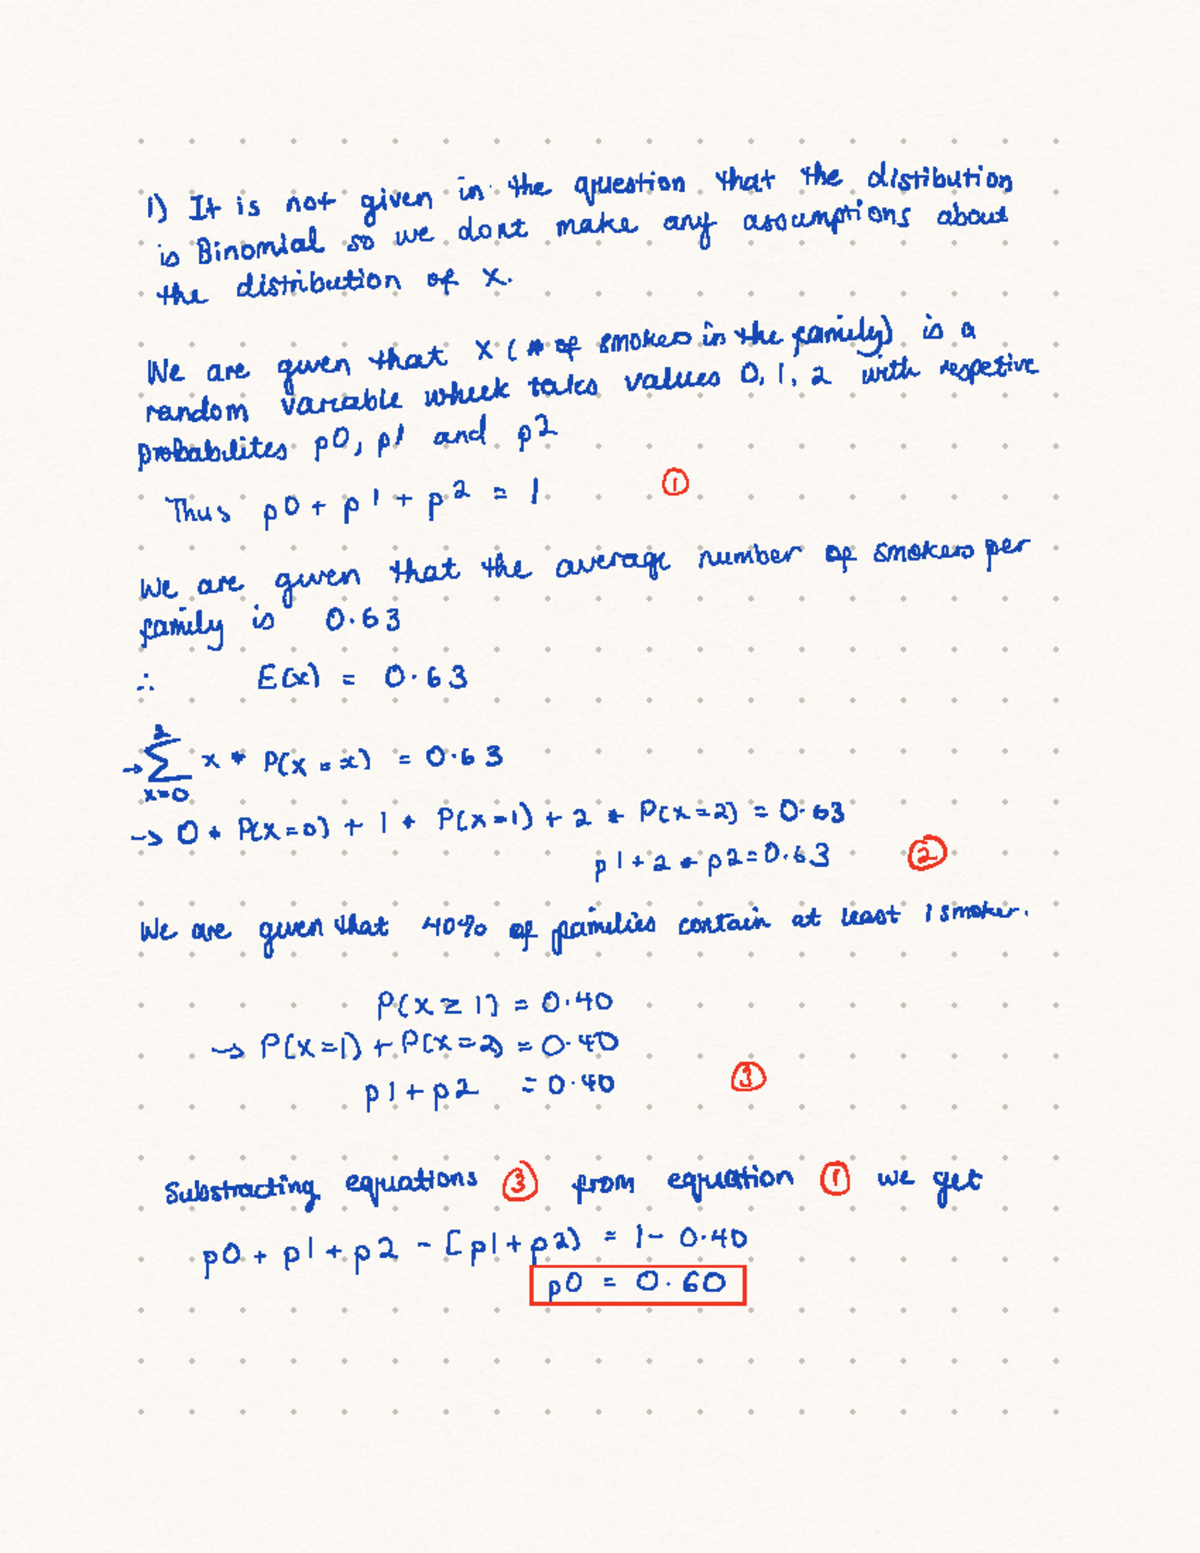 1) It is not given in the question that the distibution
is Binomial so we dont make any assumptions about
the distribution of X.
We are given that X (# of smokers in the family) is a
random variable which takes values 0, 1, 2 with respetive
probabilites p0, p1 and p2
Thus p0 + p1 + p2 = 1 ①
We are given that the average number of smokers per
family is 0.63
∴ E(x) = 0.63
→ 2 ∑ x=0 x * P(X = x) = 0.63
→ 0 * P(X=0) + 1 * P(X=1) + 2 * P(X=2) = 0.63
p1 + 2 * p2 = 0.63 ②
We are given that 40% of families contain at least 1 smoker.
P(X ≥ 1) = 0.40
→ P(X=1) + P(X=2) = 0.40
p1 + p2 = 0.40 ③
Substracting equations ③ from equation ① we get
p0 + p1 + p2 - [p1 + p2) = 1 - 0.40
p0 = 0.60